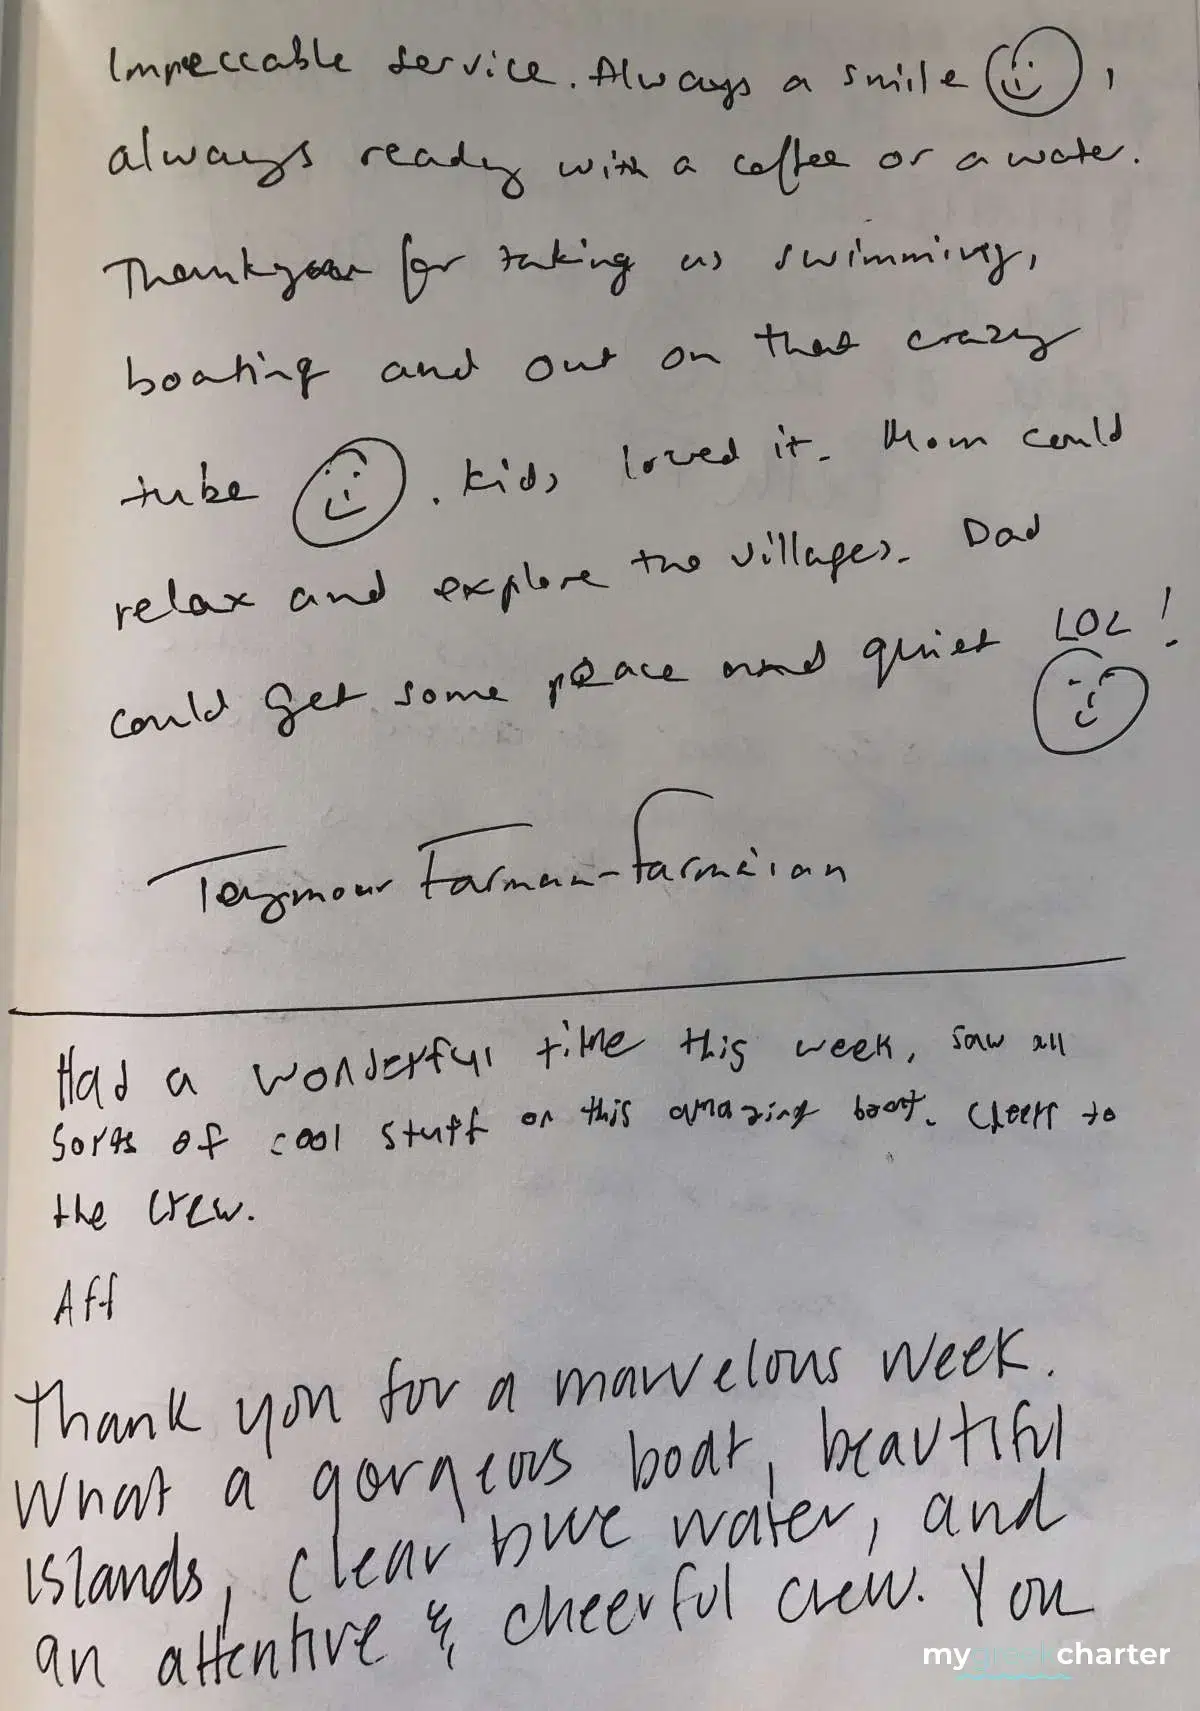 Impeccable service. Always a smile ,
always ready with a coffee or a water.
Thankyou for taking us swimming,
boating and out on that crazy
tube . Kids loved it. Mom could
relax and explore the villages. Dad
could get some peace and quiet LOL!
Teymour Farman-Farmaian
Had a wonderful time this week, saw all
sorts of cool stuff on this amazing boat. Cheers to
the crew.
Aff
Thank you for a marvelous week.
What a gorgeous boat, beautiful
islands, clear blue water, and
an attentive & cheerful crew. You
mygreekcharter